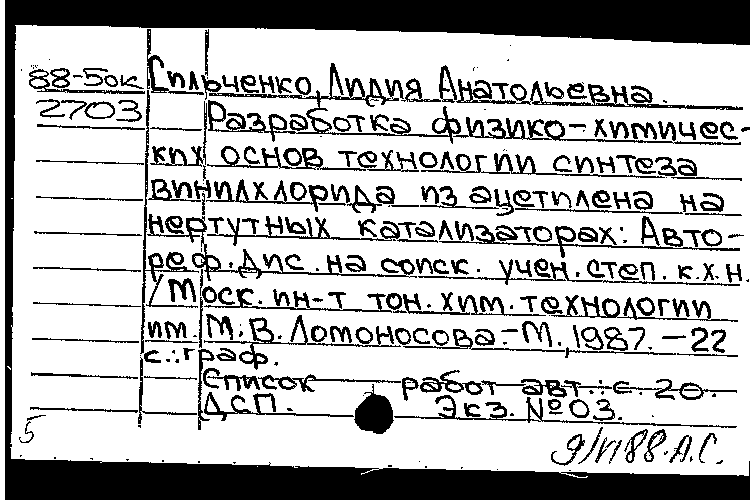 88-5ок Сильченко, Лидия Анатольевна.
2703 Разработка физико-химичес-
ких основ технологии синтеза
винилхлорида из ацетилена на
нертутных катализаторах: Авто-
реф. дис. на соиск. учен. степ. к.х.н.
/ Моск. ин-т тон. хим. технологии
им. М.В. Ломоносова.-М., 1987. -22
с.: граф.
Список работ авт.: с. 20.
ДСП. Экз. №03.
5
88. А.С.